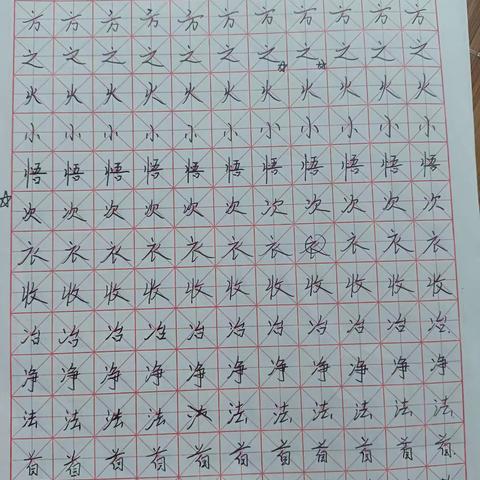 方方方方方方方方方方方
之之之之之之之之之之之
火火火火火火火火火火火
小小小小小小小小小小小
悟悟悟悟悟悟悟悟悟悟悟
次次次次次次次次次次次
衣衣衣衣衣衣衣衣衣衣衣
收收收收收收收收收收收
冶冶冶冶冶冶冶冶冶冶冶
净净净净净净净净净净净
法法法法法法法法法法法
首首首首首首首首首首首